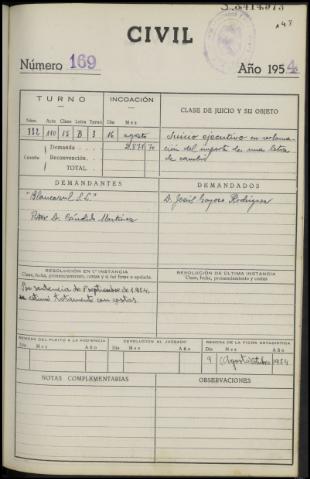 CIVIL
Número 169
Año 1954
TURNO
INCOACIÓN
CLASE DE JUICIO Y SU OBJETO
Núm. Año Clase Letra Turno Día Mes
332 110 15 B 3 16 agosto
Juicio ejecutivo en reclama-
Demanda
ción del importe de una letra
Cuantía Reconvención.
de cambio
TOTAL
DEMANDANTES
DEMANDADOS
"Blancasul S.L."
D. José Gayoso Rodríguez
Martínez
RESOLUCIÓN EN 1.ª INSTANCIA
Clase, fecha, pronunciamientos, costas y si fué firme o apelada.
RESOLUCIÓN DE ÚLTIMA INSTANCIA
Clase, fecha, pronunciamiento y costas
Por sentencia de septiembre de 1954
se estimó totalmente con costas.
REMESA DEL PLEITO A LA AUDIENCIA
DEVOLUCIÓN AL JUZGADO
REMESA DE LA FICHA ESTADÍSTICA
Día Mes Año Día Mes Año Día Mes Año
9 octubre 1954
NOTAS COMPLEMENTARIAS
OBSERVACIONES